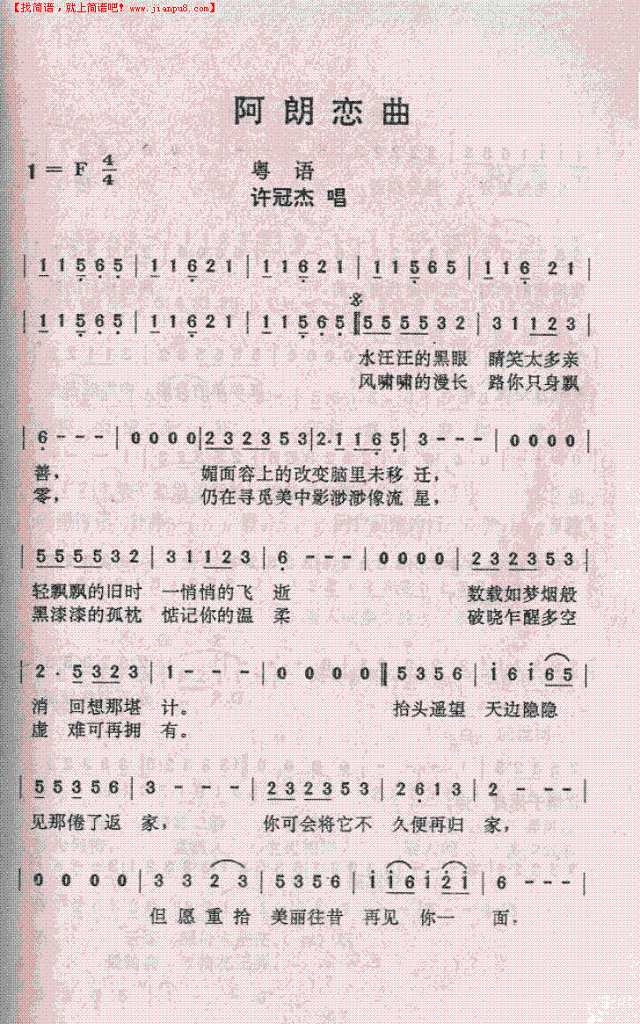 【找简谱，就上简谱吧！www.jianpu8.com】
阿朗恋曲
1 = F 4/4
粤语
许冠杰 唱
| 1 1 5 6 5 | 1 1 6 2 1 | 1 1 6 2 1 | 1 1 5 6 5 | 1 1 6 2 1 |
| 1 1 5 6 5 | 1 1 6 2 1 | 1 1 5 6 5 ‖ 5 5 5 5 3 2 | 3 1 1 2 3 |
水汪汪的黑眼 睛笑太多亲
风啸啸的漫长 路你只身飘
| 6 - - - | 0 0 0 0 | 2 3 2 3 5 3 | 2· 1 1 6 5 | 3 - - - | 0 0 0 0 |
善， 媚面容上的改变脑里未移 迁，
零， 仍在寻觅美中影渺渺像流 星，
| 5 5 5 5 3 2 | 3 1 1 2 3 | 6 - - - | 0 0 0 0 | 2 3 2 3 5 3 |
轻飘飘的旧时 一悄悄的飞 逝 数载如梦烟般
黑漆漆的孤枕 惦记你的温 柔 破晓乍醒多空
| 2· 5 3 2 3 | 1 - - - | 0 0 0 0 ‖ 5 3 5 6 | i 6 i 6 5 |
消 回想那堪 计。 抬头遥望 天边隐隐
虚 难可再拥 有。
| 5 5 3 5 6 | 3 - - - | 2 3 2 3 5 3 | 2 6 1 3 | 2 - - - |
见那倦了返 家， 你可会将它不 久便再归 家，
| 0 0 0 0 | 3 3 2 3 | 5 3 5 6 | i i 6 i 2 i | 6 - - - |
但愿重拾 美丽往昔 再见 你一 面.